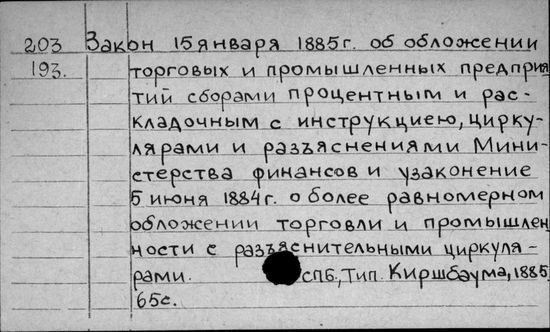 203 Закон 15 января 1885 г. об обложении
193. торговых и промышленных предприя
тий сборами процентным и рас-
кладочным с инструкциею, цирку-
лярами и разъяснениями Мини-
стерства финансов и узаконение
5 июня 1884 г. о более равномерном
обложении торговли и промышлен
ности с разъяснительными циркуля-
рами. СПб., Тип. Киршбаума, 1885
65с.